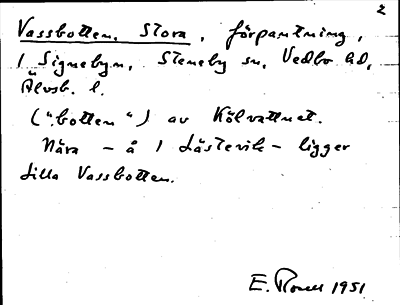 2
Vassbotten, Stora, förpantning,
i Signebyn, Steneby sn, Vedbo hd,
Älvsb. l.
("botten") av Kölvattnet.
Nära – å i Låstevik – ligger
Lilla Vassbotten.
E. 1951